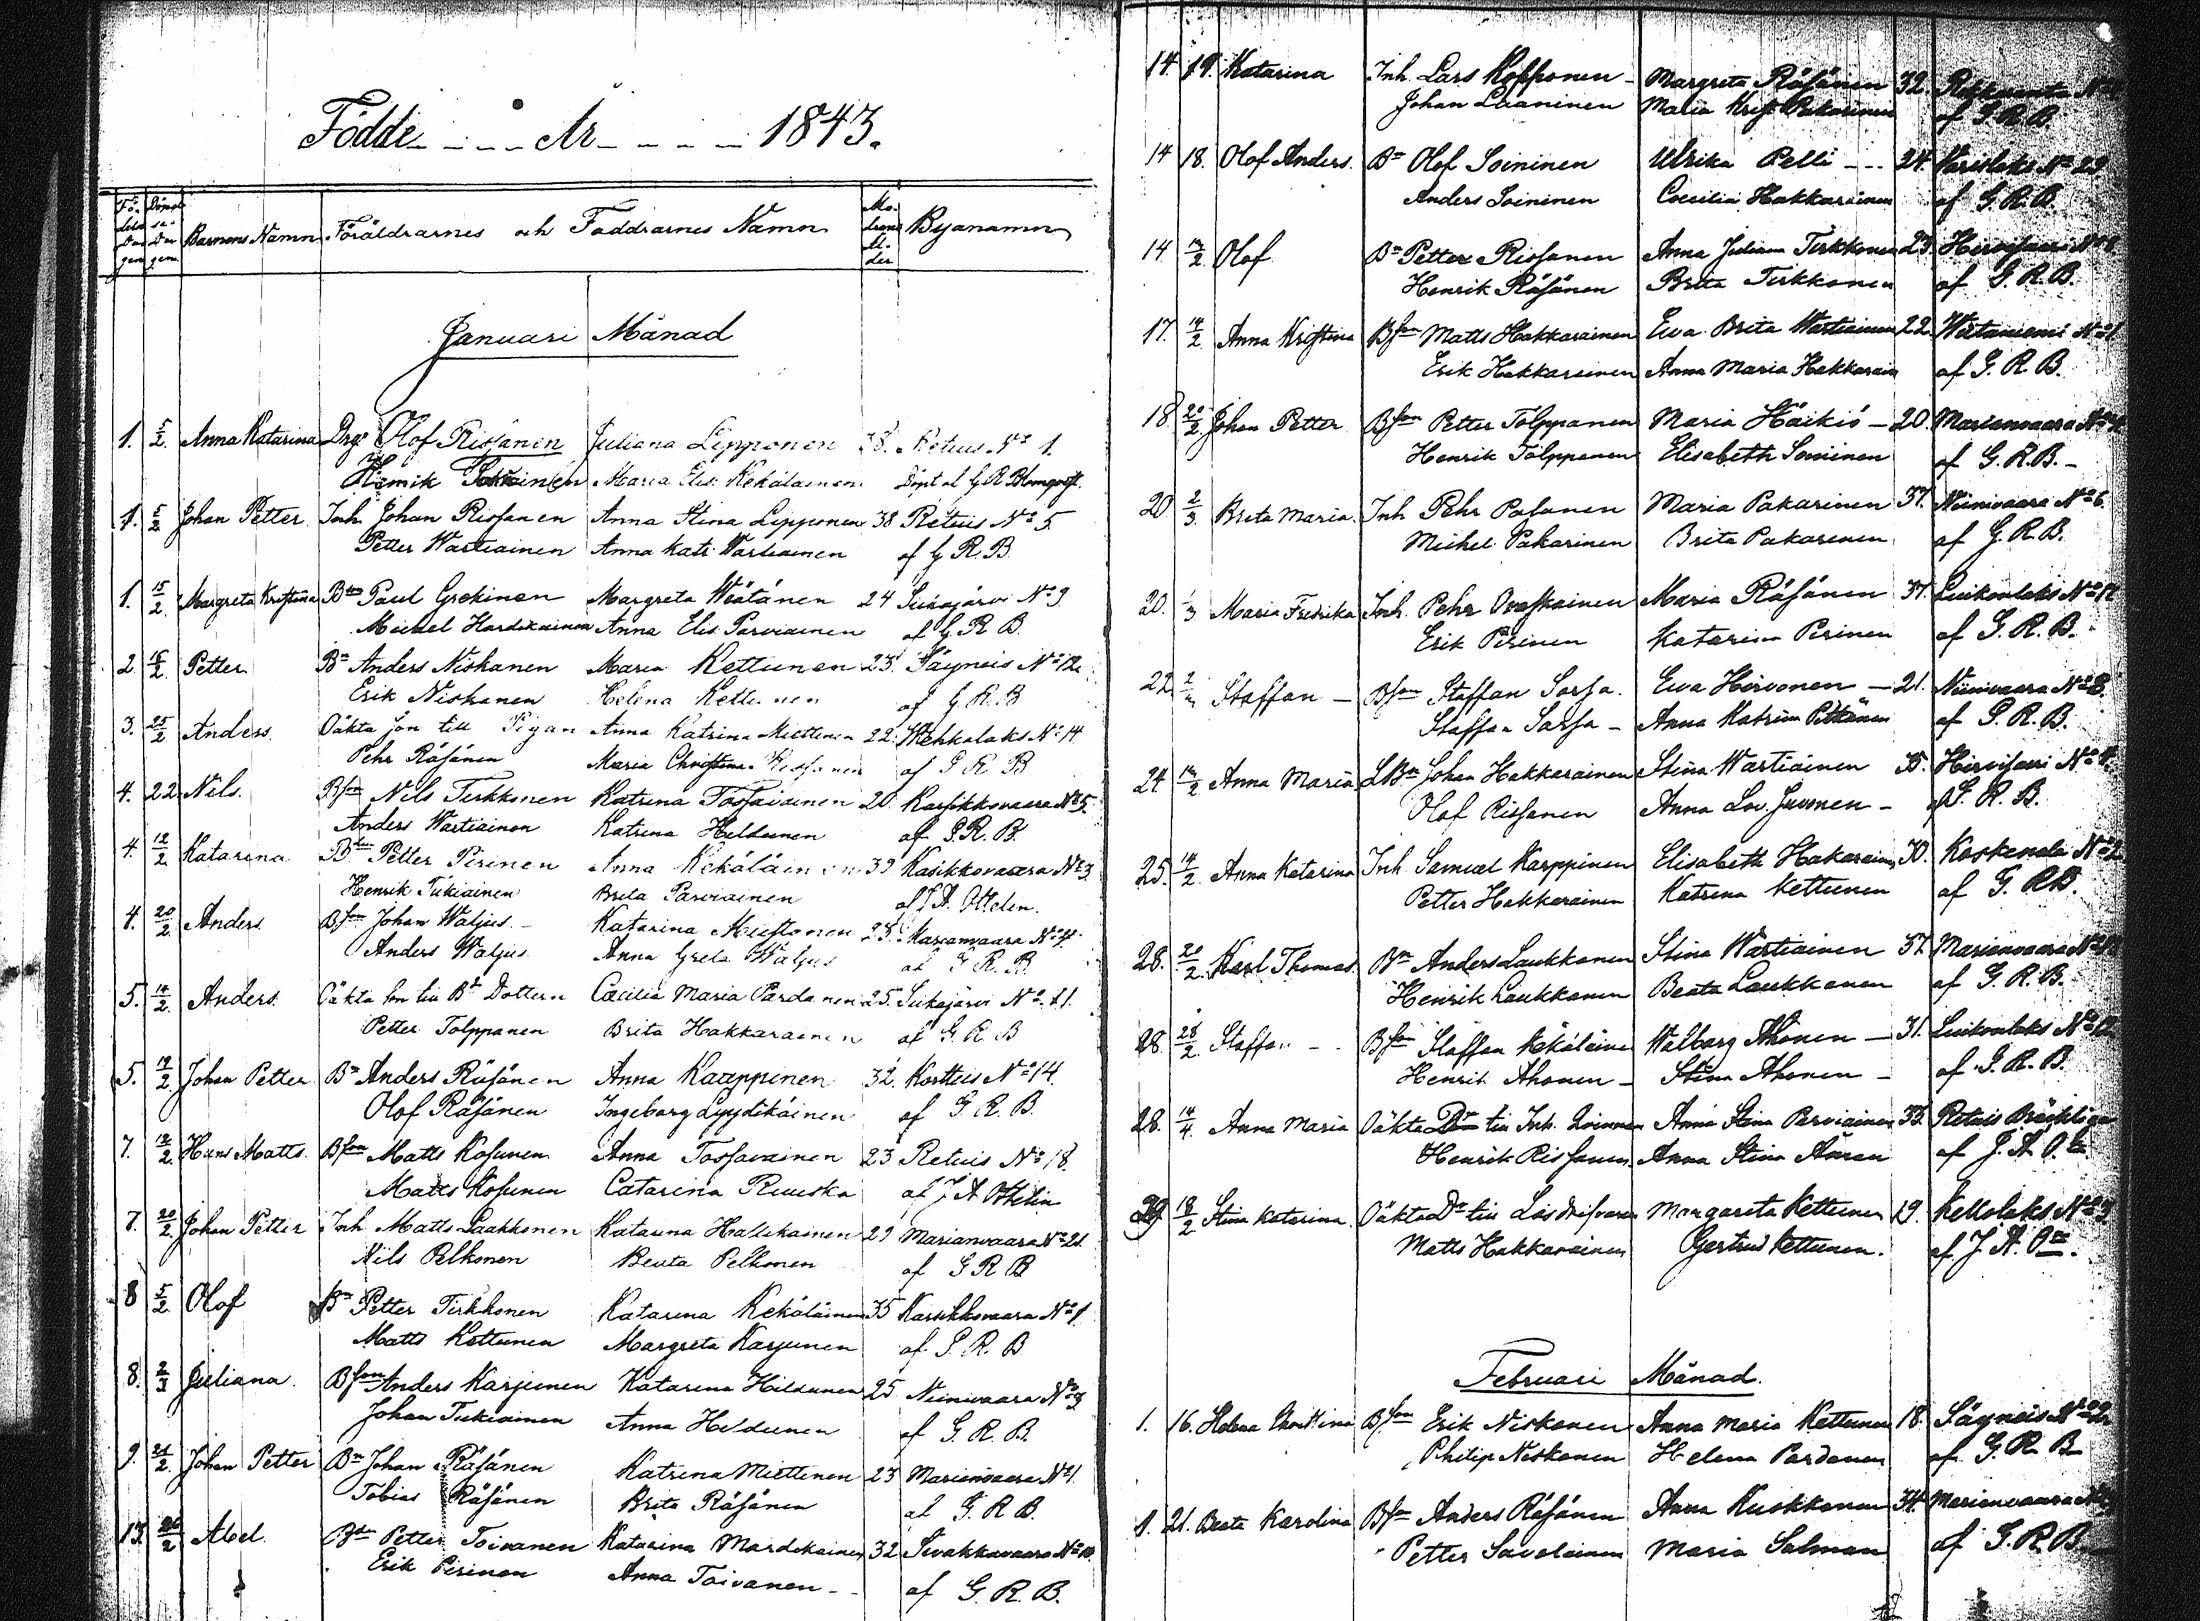 Födde år 1843.
Födelse Dagen Döpelse Dagen Barnens Namn Föräldrarnes och Faddrarnes Namn Modrens Ålder Byanamn
Januari Månad
1. 5/2 Anna Katarina Olof Rissanen Juliana Lipponen 38. Retuis No 1.
Henrik Maria Elis. Kekäläinen Döpt af G R Blomqvist
1. 5/2 Johan Petter Inh. Johan Rissanen Anna Stina Lipponen 38 Retuis No 5
Petter Wartiainen Anna Katr. Wartiainen af G R B.
1. 15/2 Margreta Kristina Paul Margreta Wäätänen 24 No 9
Michel Anna Elis Parviainen af G. R B.
2 16/2 Petter Bn Anders Niskanen Maria Kettunen 23. Säyneis No 12.
Erik Niskanen Helena Kettunen af G. R. B
3. 25/2 Anders. Oäkta son till Pigan Anna Katrina Miettinen 22. No 14
Pehr Räsänen Maria Christina Rissanen af G R B
4. 22 Nils. Bson Nils Tirkkonen Katrina Tossavainen 20. Karsikkovaara No 5.
Anders Wartiainen Katrina Hildunen af G. R. B.
4. 12/2 Katarina Petter Pirinen Anna Kekäläinen 39 Kasikkovaara No 3
Henrik Tukiainen Brita Parviainen af J A. Ottelin.
4. 20/2 Anders. Bson Johan Waljus Katarina 23. Marianvaara No 4.
Anders Waljus Anna Greta Waljus af G R. B.
5. 14/2 Anders. Oäkta son till Bd Dottern Cæcilia Maria Pardanen 25. Suikajärvi No 11.
Petter Tolppanen Brita Hakkarainen af G. R B
5. 19/2 Johan Petter Bn Anders Räsänen Anna Kaappinen 32. Kortteis No 14.
Olof Räsänen Ingeborg Lyydikäinen af G. R. B.
7. 12/2 Hans Matts. Bson Matts Kosunen Anna Tossavainen 23 Retuis No 18.
Matts Kosunen Catarina Ruuska af J A Ottelin
7. 20/2 Johan Petter Inh Matts Laakkonen Katarina 29 Marianvaara No 21.
Nils Pelkonen Beata Pelkonen af G R B
8 5/2 Olof Bn Petter Tirkkonen Katarina Kekäläinen 35 Karsikkovaara No 1
Matts Kettunen Margreta Karjunen af G. R. B
8. 2/3 Juliana. Bson Anders Karjunen Katarina Hildunen 25 Niinivaara No 3
Johan Tukiainen Anna Hildunen af G. R. B.
9. 21/2 Johan Petter Bn Johan Räsänen Katrina Miettinen 23 Marianvaara No 1.
Tobias Räsänen Brita Räsänen af G. R B.
13. Abel. Petter Toivanen Katarina Mardikainen 32 Sivakkavaara No 10.
Erik Pirinen Anna Toivanen af G. R. B.
14. 19. Katarina Inh. Lars Kopponen Margreta Räsänen 32.
Johan Laaninen Maria Krist. Pakarinen af G. R. B.
14 18. Olof Anders. Bn Olof Soininen Ulrika Pelli 24. Varislaks No 29
Anders Soininen Cæcilia Hakkarainen af G. R. B.
14 Olof Bn Petter Rissanen Anna Juliana Tirkkonen 23. Hirvisaari
Henrik Räsänen Brita Tirkkonen af G. R. B.
17. 14/2 Anna Kristina Bson Matts Hakkarainen Ewa Brita Wartiainen 22. Wiitaniemi No 1
Erik Hakkarainen Anna Maria Hakkarain af G. R. B.
18. 20/2 Johan Petter Bson Petter Tolppanen Maria Häikiö 20. Marianvaara
Henrik Tolppanen Elisabeth Soininen af G. R. B.
20 2/3 Brita Maria. Inh Pehr Pasanen Maria Pakarinen 37. Niinivaara No 6.
Michel Pakarinen Brita Pakarinen af G. R. B.
20. 1/3 Maria Fredrika Inh. Pehr Ovaskainen Maria Räsänen 37. Luikonlaks No 12
Erik Pirinen Katarina Pirinen af G. R. B.
22 Staffan Bson Staffan Sorsa. Ewa Hirvonen 21. Niinivaara No 8.
Staffan Sorsa Anna Katrina Pitkänen af G. R. B.
24 Anna Maria LBn Johan Hakkarainen Stina Wartiainen 35. Hirvisaari
Olof Rissanen Anna Lov. af G. R. B.
25. 14/2 Anna Katarina Inh Samuel Karppinen Elisabeth Hakarain 30. No 2
Petter Hakkarainen Katrina Kettunen af G. R B.
28. 20/2 Karl Thomas. Bn Anders Laukkanen Stina Wartiainen 37. Marianvaara
Henrik Laukkanen Beata Laukkanen af G. R. B.
28. 28/2 Staffan Bson Staffan Kekäläine Walborg Ahonen 31. Luikonlaks No 12
Henrik Ahonen Stina Ahonen af G. R. B.
28. 14/4 Anna Maria Oäkta Dr till Inh. Qvinnan Anna Stina Parviainen 33. Retuis
Henrik Rissanen. Anna Stina af J. A. O.
29 18/2 Stina Katarina. Oäkta Dr till Margareta Kettunen 19. Kellolaks No 3
Matts Hakkarainen Gertrud Kettunen. af J. A. On.
Februari Månad.
1. 16. Helena Christina Bson Erik Niskanen Anna Maria Kettunen 18. Säyneis
Philip Niskanen Helena Pardanen af G. R. B
1. 21. Beata Karolina Bson Anders Räsänen Anna Kuokkanen 34. Marianvaara
Petter Savolainen Maria Salman af G. R. B.